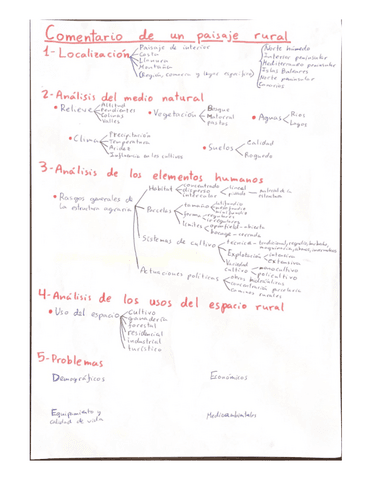 Comentario de un paisaje rural
1- Localización
Paisaje de interior
Costa
Llanura
Montaña
(Región, comarca y lugar específico)
Norte húmedo
Interior peninsular
Mediterráneo peninsular
Islas Baleares
Canarias
2- Análisis del medio natural
• Relieve
Altitud
Pendientes
Colinas
Valles
• Vegetación
Bosque
Matorral
pastos
• Aguas
Ríos
Lagos
• Clima
Precipitación
Temperatura
Aridez
Influencia en los cultivos
• Suelos
calidad
Roquedo
3- Análisis de los elementos humanos
• Rasgos generales de la estructura agraria
Hábitat
concentrado
disperso
intercalar
lineal
Parcelas
tamaño
latifundio
minifundio
forma
regulares
irregulares
límites
openfield - abierto
bocage - cerrado
Sistemas de cultivo
técnica
Explotación
intensiva
extensiva
Variedad cultivo
monocultivo
policultivo
Actuaciones políticas
obras hidráulicas
concentración parcelaria
caminos rurales
4- Análisis de los usos del espacio rural
• Uso del espacio
cultivo
ganadería
forestal
residencial
industrial
turístico
5- Problemas
Demográficos
Económicos
Equipamiento y calidad de vida
Medioambientales